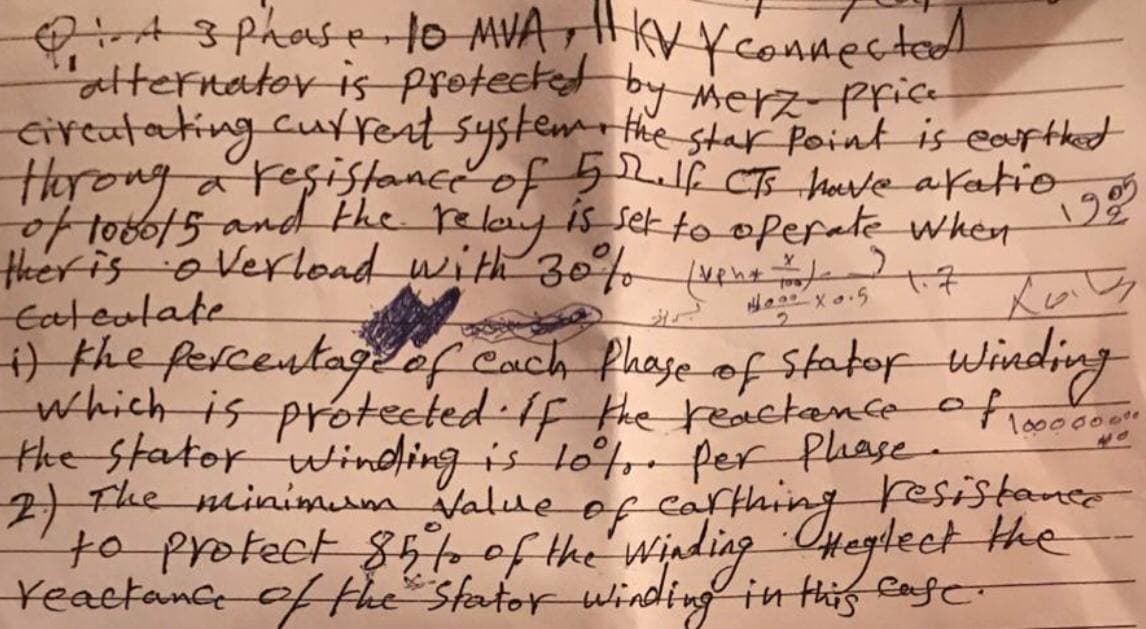 Q:- A 3 phase, 10 MVA, 11 KV Y connected
alternator is protected by Merz-price
circulating current system, the star point is earthed
throng a resistance of 5 Ω. If CTs have a ratio
of 1000/5 and the relay is set to operate when
ther is overload with 30%
calculate
i) the percentage of each phase of stator winding
which is protected. if the reactance of
the stator winding is 10%. per phase.
2) The minimum value of earthing resistance
to protect 85% of the winding Neglect the
reactance of the stator winding in this case.